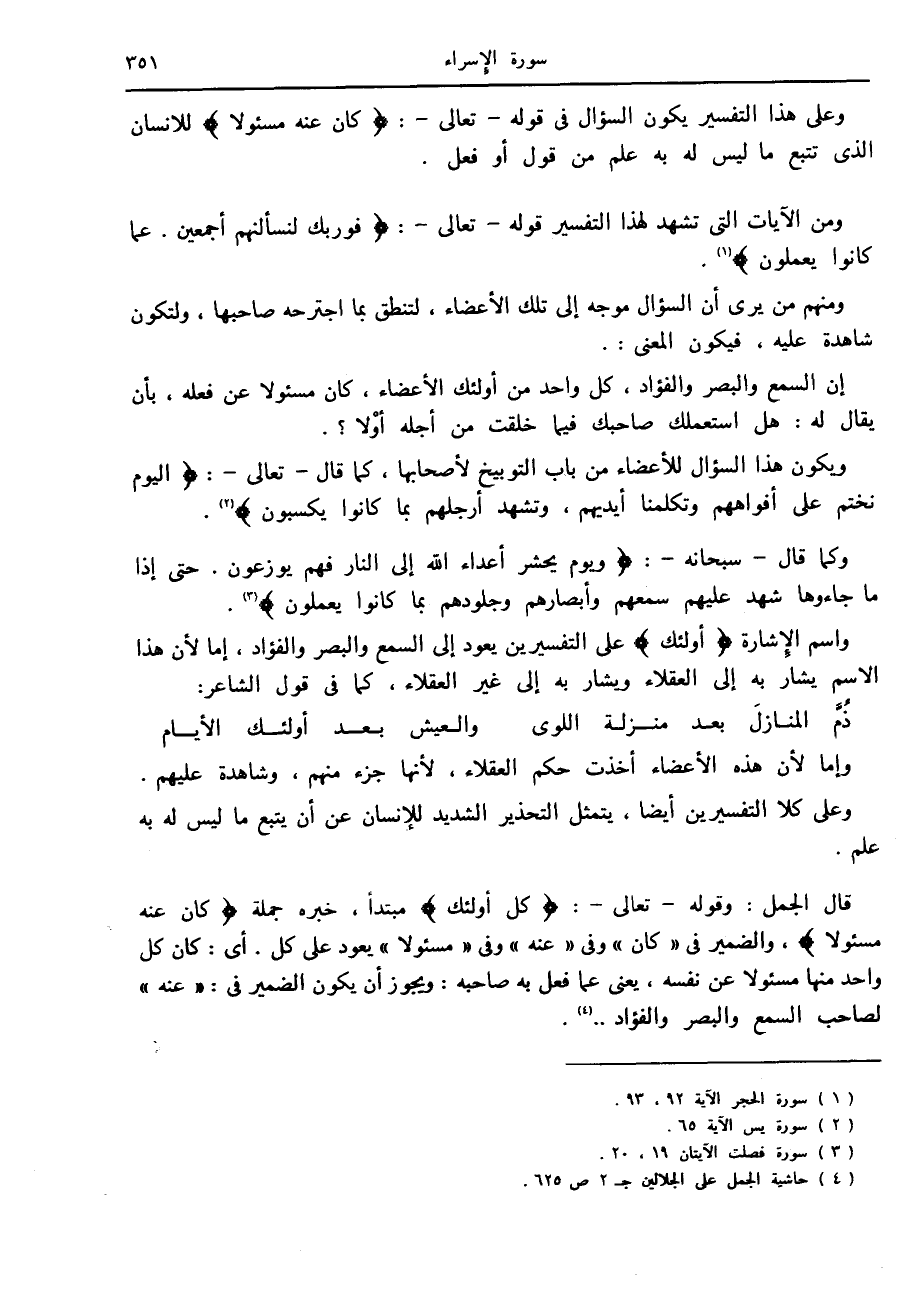 سورة الإسراء ٣٥١
وعلى هذا التفسير يكون السؤال فى قوله – تعالى – : ﴿ كان عنه مسئولا ﴾ للانسان
الذى تتبع ما ليس له به علم من قول أو فعل .
ومن الآيات التى تشهد لهذا التفسير قوله – تعالى – : ﴿ فوربك لنسألنهم أجمعين . عما
كانوا يعملون ﴾(١) .
ومنهم من يرى أن السؤال موجه إلى تلك الأعضاء ، لتنطق بما اجترحه صاحبها ، ولتكون
شاهدة عليه ، فيكون المعنى : .
إن السمع والبصر والفؤاد ، كل واحد من أولئك الأعضاء ، كان مسئولا عن فعله ، بأن
يقال له : هل استعملك صاحبك فيما خلقت من أجله أوْلا ؟ .
ويكون هذا السؤال للأعضاء من باب التوبيخ لأصحابها ، كما قال – تعالى – : ﴿ اليوم
نختم على أفواههم وتكلمنا أيديهم ، وتشهد أرجلهم بما كانوا يكسبون ﴾(٢) .
وكما قال – سبحانه – : ﴿ ويوم يحشر أعداء الله إلى النار فهم يوزعون . حتى إذا
ما جاءوها شهد عليهم سمعهم وأبصارهم وجلودهم بما كانوا يعملون ﴾(٣) .
واسم الإشارة ﴿ أولئك ﴾ على التفسيرين يعود إلى السمع والبصر والفؤاد ، إما لأن هذا
الاسم يشار به إلى العقلاء ويشار به إلى غير العقلاء ، كما فى قول الشاعر:
ذُمَّ المنازلَ بعد منزلة اللوى والعيش بعد أولئك الأيام
وإما لأن هذه الأعضاء أخذت حكم العقلاء ، لأنها جزء منهم ، وشاهدة عليهم .
وعلى كلا التفسيرين أيضا ، يتمثل التحذير الشديد للإنسان عن أن يتبع ما ليس له به
علم .
قال الجمل : وقوله – تعالى – : ﴿ كل أولئك ﴾ مبتدأ ، خبره جملة ﴿ كان عنه
مسئولا ﴾ ، والضمير فى « كان » وفى « عنه » وفى « مسئولا » يعود على كل . أى : كان كل
واحد منها مسئولا عن نفسه ، يعنى عما فعل به صاحبه : ويجوز أن يكون الضمير فى : « عنه »
لصاحب السمع والبصر والفؤاد ..(٤) .
( ١ ) سورة الحجر الآية ٩٢ ، ٩٣ .
( ٢ ) سورة يس الآية ٦٥ .
( ٣ ) سورة فصلت الآيتان ١٩ ، ٢٠ .
( ٤ ) حاشية الجمل على الجلالين جـ ٢ ص ٦٢٥ .